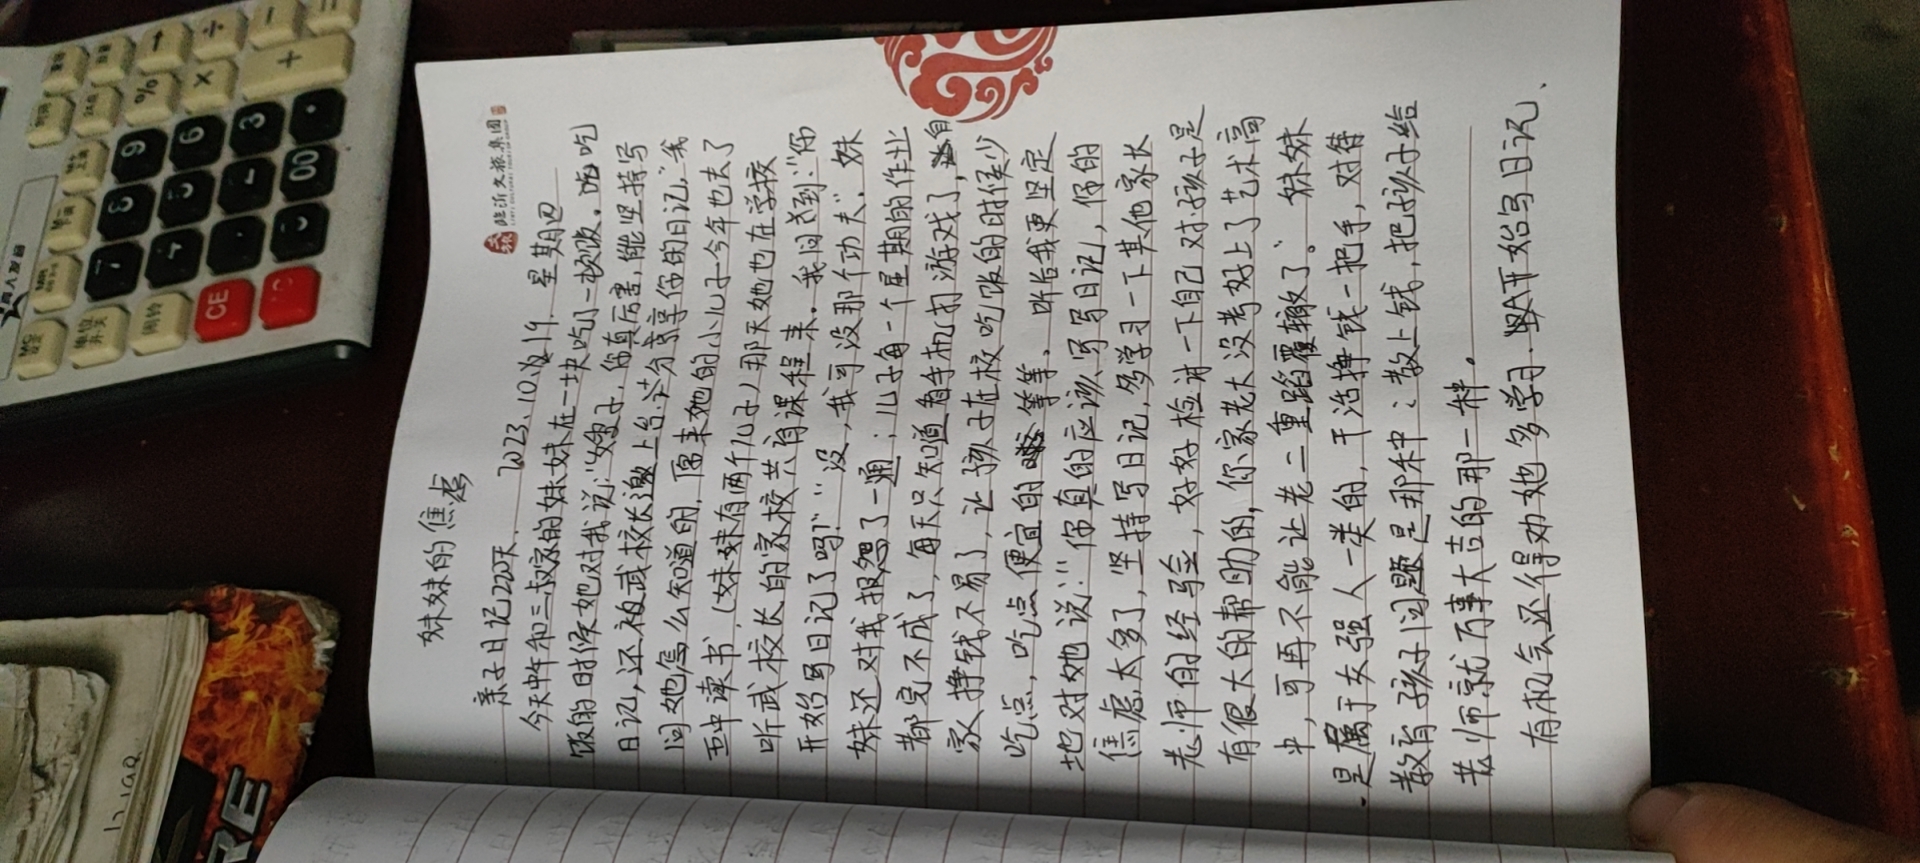 临沂文旅集团
妹妹的焦虑
亲子日记220天、 2023.10.19. 星期四
今天中午和三叔家的妹妹在一块吃了一顿饭。吃
饭的时候她对我说:“嫂子,你真厉害,能坚持写
日记,还被武校长邀上台分享你的日记,”我
问她怎么知道的,原来她的小儿子今年也去了
五中读书,(妹妹有两个儿子)那天她也在学校
听武校长的家校共育课程来。我回到:“你
开始写日记了吗?”“没,我可没那个功夫”。妹
妹还对我报怨了一通;儿子每一个星期的作业
都完不成了,每天只知道看手机打游戏了,自
家挣钱不易了,让孩子在校吃饭的时候少
吃点,吃点便宜的等等。听后我更坚定
地对她说:“你真的应该写写日记,你的
焦虑太多了,坚持写日记,多学习一下其他家长
老师的经验,好好检讨一下自己对孩子是
有很大的帮助的,你家老大没考好上了艺术高
中,可再不能让老二重蹈覆辙了。”妹妹
是属于女强人一类的,干活挣钱一把手,对待
教育孩子问题是那种:教上钱,把孩子给
老师就万事大吉的那一种。
有机会还得劝她多学习.开始写日记、
CE
7 8 9
4 5 6
3
00
% × ÷
+ −
RE